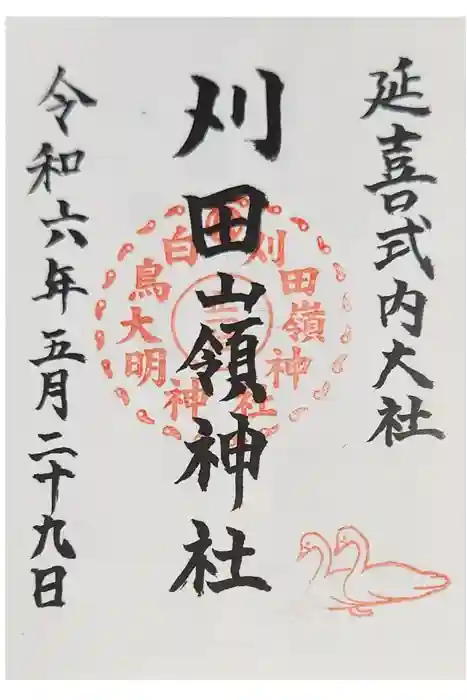 延喜式内大社
刈田嶺神社
令和六年五月二十九日
刈田嶺神社
白鳥大明神